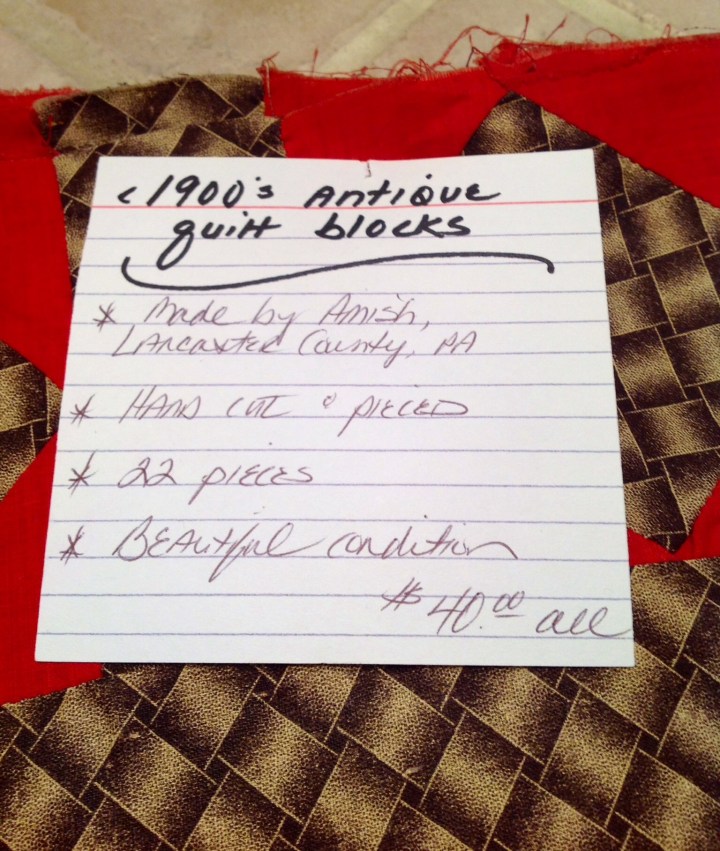 <1900's Antique
quilt blocks
* Made by Amish,
Lancaster County, PA
* Hand cut & pieced
* 22 pieces
* Beautiful condition
$40.00 all